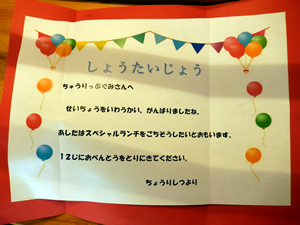 しょうたいじょう
ちゅうりっぷぐみさんへ
せいちょうをいわうかい、がんばりましたね。
あしたはスペシャルランチをごちそうしたいとおもいます。
12じにおべんとうをとりにきてください。
ちょうりしつより